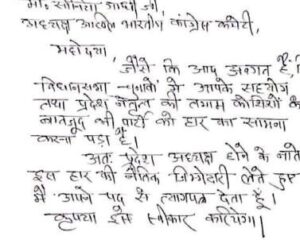 मा. सोनिया गांधी जी,
अध्यक्ष अखिल भारतीय कांग्रेस कमेटी,
महोदया,
जैसे कि आप अवगत हैं,
विधानसभा चुनावों में आपके सहयोग
तथा प्रदेश नेतृत्व की तमाम कोशिशों के
बावजूद की पार्टी को हार का सामना
करना पड़ा है।
अतः प्रदेश अध्यक्ष होने के नाते
इस हार की नैतिक जिम्मेदारी लेते हुए
मैं अपने पद से त्यागपत्र देता हूँ।
कृपया इसे स्वीकार करियेगा।